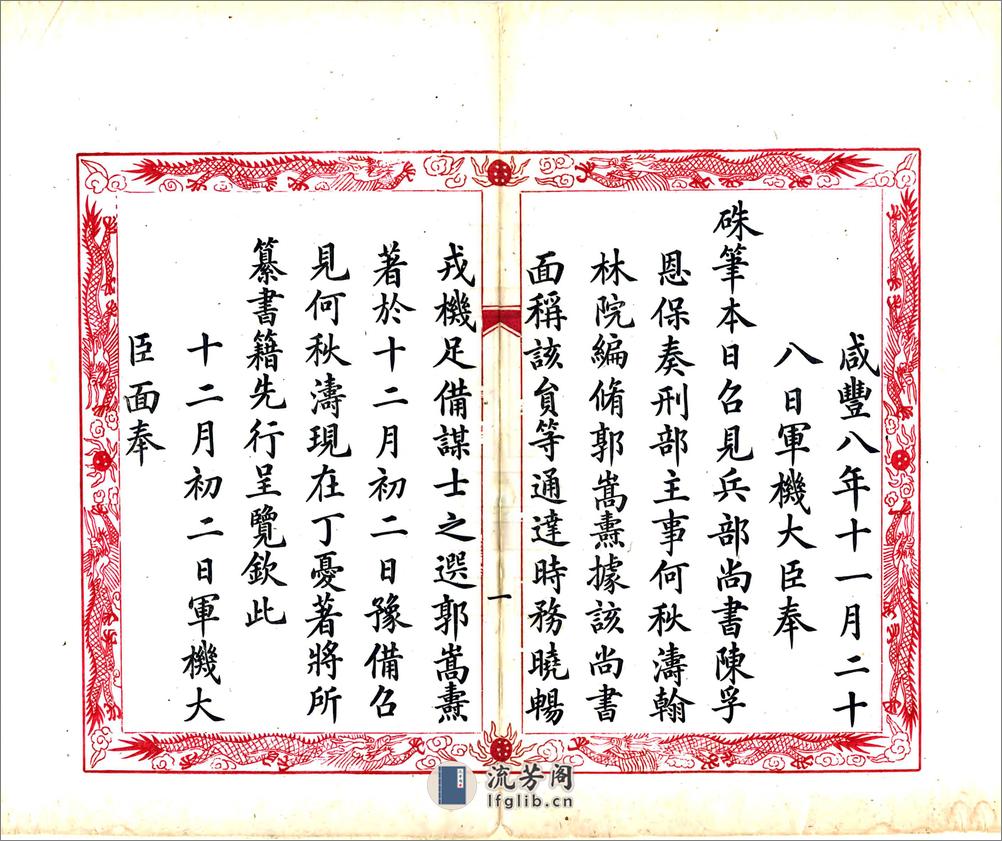 咸豐八年十一月二十
八日軍機大臣奉
硃筆本日召見兵部尚書陳孚
恩保奏刑部主事何秋濤翰
林院編脩郭嵩燾據該尚書
面稱該貟等通達時務曉暢
戎機足備謀士之選郭嵩燾
著於十二月初二日豫備召
見何秋濤現在丁憂著將所
纂書籍先行呈覽欽此
十二月初二日軍機大
臣面奉
一
流芳阁
lfglib.cn